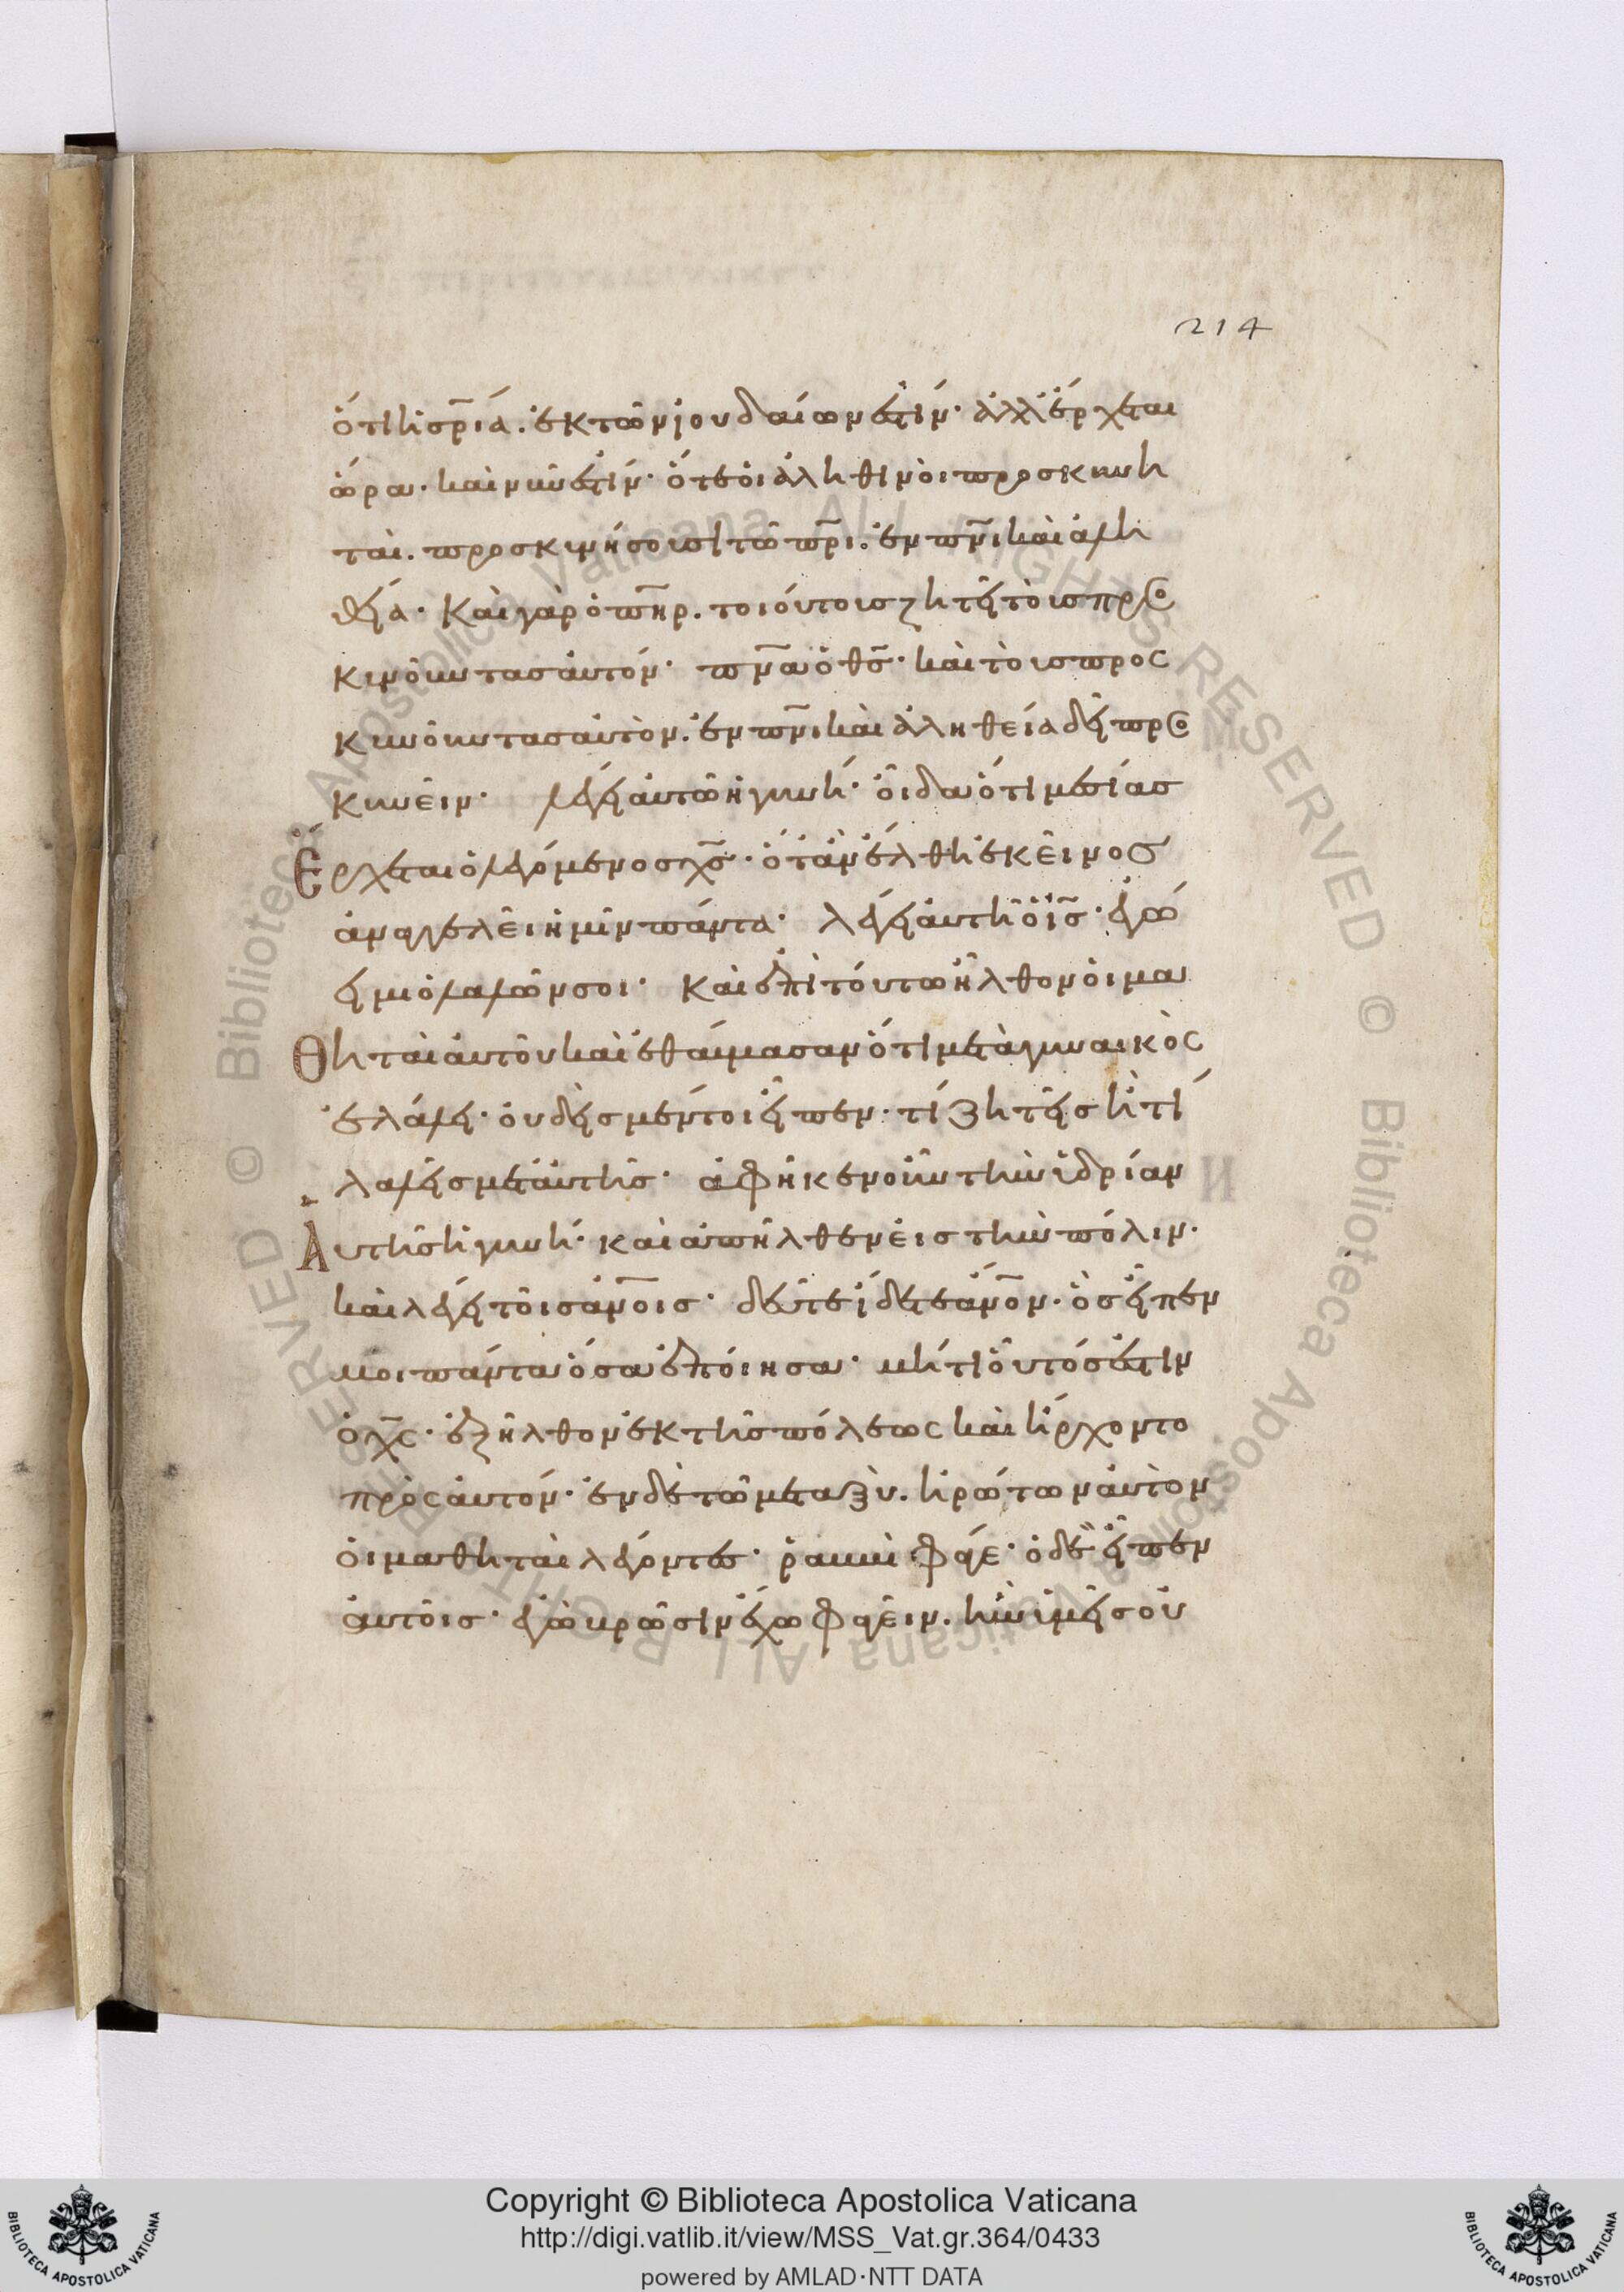 214
ὅτι ἡ σ̅ρ̅ι̅ά. ἐκ τῶν ἰουδαίων ἐστίν· ἀλλ' ἔρχεται
ὥρα· καὶ νῦν ἐστίν· ὅτε οἱ ἀληθινοὶ προσκυνη
ταὶ. προσκινήσουσι τῶ π̅ρ̅ι̅. ἐν π̅ν̅ι̅ καὶ ἀλη
θεία· Καὶ γὰρ ὁ π̅η̅ρ̅. τοιούτους ζητεῖ τοὺς προσ
κινοῦντας αὐτόν· π̅ν̅α̅ ὁ θ̅ς̅· καὶ τοὺς προς
κυνοῦντας αὐτὸν. ἐν π̅ν̅ι̅ καὶ ἀληθεία δεῖ προσ
κυνεῖν· λέγει αὐτῶ ἡ γυνή· οἶδα ὅτι μεσίας
Ἔρχεται ὁ λεγόμενος χ̅ς̅· ὅταν ἔλθη ἐκεῖνος
ἀναγγελεῖ ἡμῖν πάντα· λέγει αὐτῆ ὁ ι̅ς̅· ἐγώ
εἰμι ὁ λαλῶν σοι· Καὶ ἐπὶ τούτω ἦλθον οἱ μα
Θηταὶ αὐτοῦ καὶ ἐθαύμασαν ὅτι μετὰ γυναικὸς
ἐλάλει· οὐδεὶς μέντοι εἶπεν· τί ζητεῖς ἢ τί
λαλεῖς μετ' αὐτῆς· ἀφῆκεν οὖν τὴν ὑδρίαν
Αὐτῆς ἡ γυνή· καὶ ἀπῆλθεν εἰς τὴν πόλιν·
καὶ λέγει τοῖς α̅ν̅ο̅ις· δεῦτε ἴδετε α̅ν̅ο̅ν· ὃς εἶπεν
μοι πάντα ὅσα ἐποίησα· μήτι οὗτός ἐστιν
ὁ χ̅ς̅· ἐξῆλθον ἐκ τῆς πόλεως καὶ ἤρχοντο
πρὸς αὐτόν· ἐν δὲ τῶ μεταξὺ. ἠρώτων αὐτὸν
οἱ μαθηταὶ λέγοντες· ῥαββὶ φάγε· ὁ δὲ εἶπεν
αὐτοῖς· ἐγὼ βρῶσιν ἔχω φαγεῖν. ἣν ὑμεῖς οὐ
Copyright © Biblioteca Apostolica Vaticana
http://digi.vatlib.it/view/MSS_Vat.gr.364/0433
powered by AMLAD·NTT DATA
BIBLIOTECA APOSTOLICA VATICANA
BIBLIOTECA APOSTOLICA VATICANA